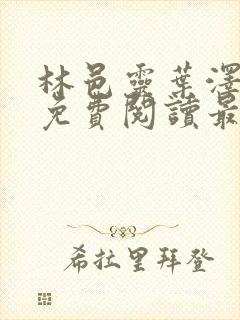 林邑靈葉澤
免費閱讀最
希拉里拜登